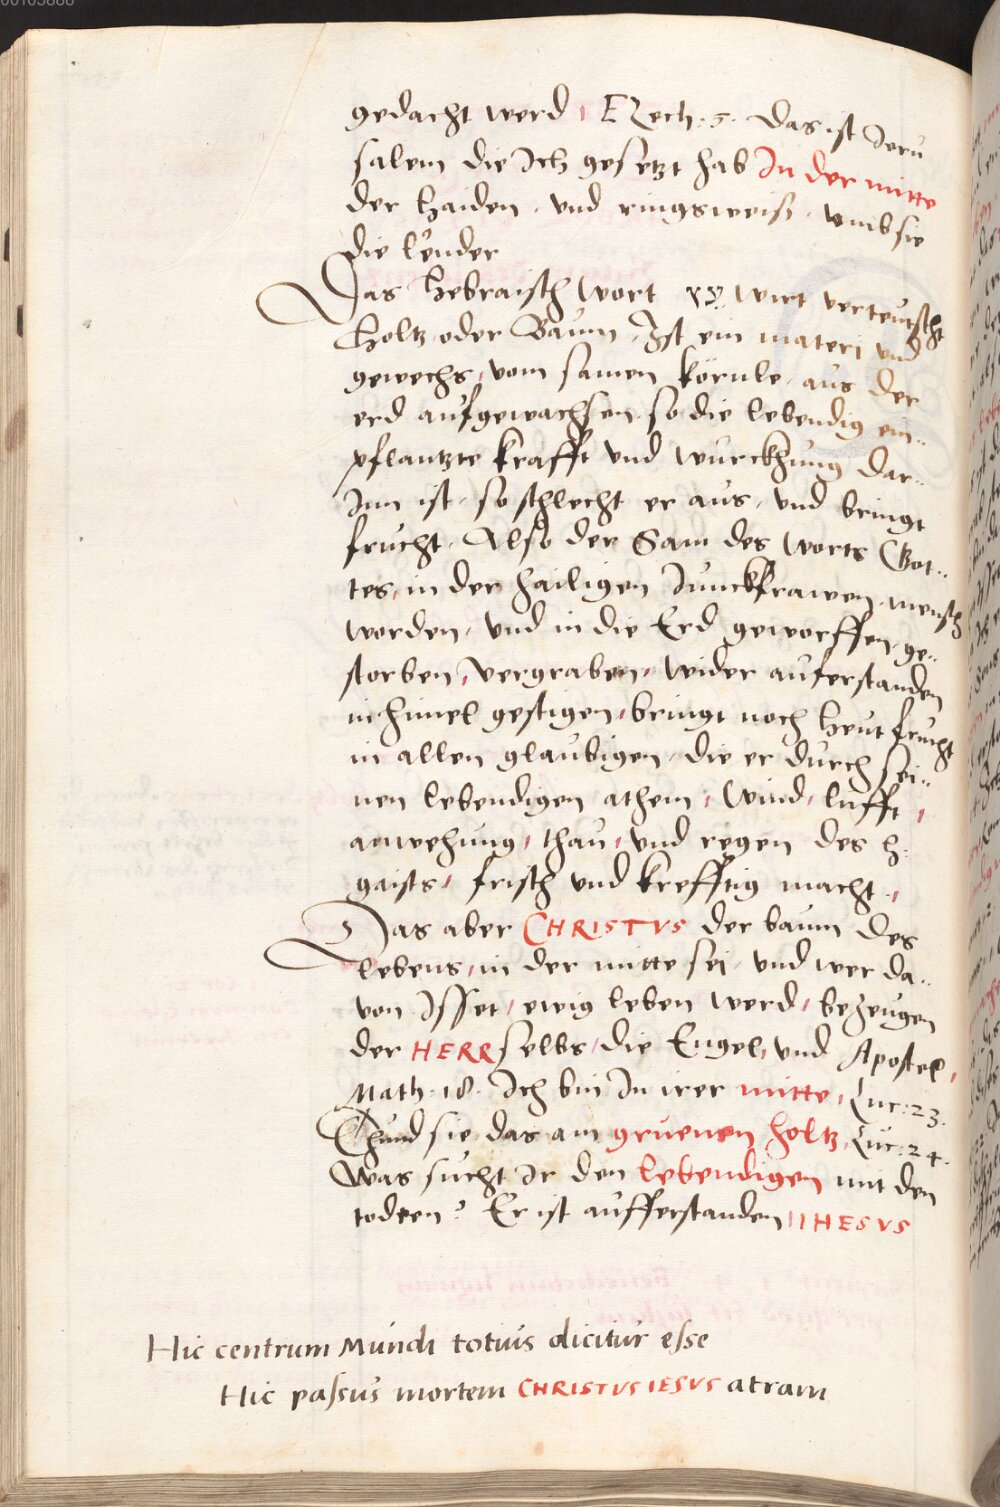 00105888
gedacht werd / EZech. 5. Das ist Jeru
salem die Ich gesetzt hab In der mitte
der Haiden, und ringsweiss, umb sie
die lënder
Das Hebraisch Wort עץ wirt verteutscht
Holtz oder Baum, Ist ein materj und
gewechs, vom samen körnle, aus der
erd aufgewachsen, so die lebendig ein..
pflantzte krafft und würckhung dar..
Inn ist, so schlecht er aus, und bringt
frucht, Also der Sam des Worts Got..
tes, in der hailigen Junckfrawen, mensch
worden, und in die Erd geworffen, ge..
storben, vergraben, wider auferstanden
in himel gestigen, bringt noch heut frucht
in allen glaubigen, die er durch sei..
nen lebendigen athem, Wind, lufft,
anwehung, thau, und regen des h.
gaists, frisch und krefftig macht.,
Das aber CHRISTVS der baum des
lebens, in der mitte sei, und wer da..
von Isset, ewig leben werd, bezeugen
der HERR selbs, die Engel, und Apostel,
Math. 18. Ich bin In irer mitte, Luc. 23.
Thund sie das am gruenen holtz, Luc. 24.
Was sucht Ir den lebendigen mit den
todten? Er ist aufferstanden, IHESVS
Hic centrum Mundi totius dicitur esse
Hic passus mortem CHRISTVS IESVS atram